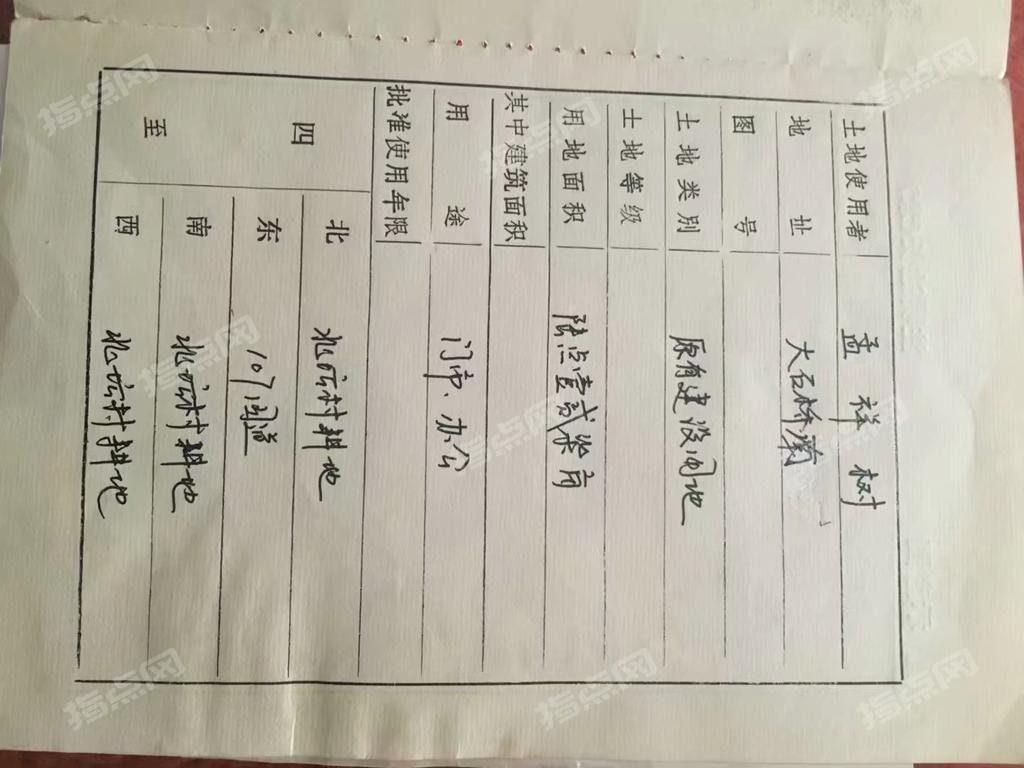 土地使用者 孟祥树
地址 大石桥南
图号
土地类别 原有建设用地
土地等级
用地面积 陆点壹贰柒亩
其中建筑面积
用途 门市、办公
批准使用年限
四至
北 北 村耕地
东 107国道
南 北 村耕地
西 北 村耕地
指点网